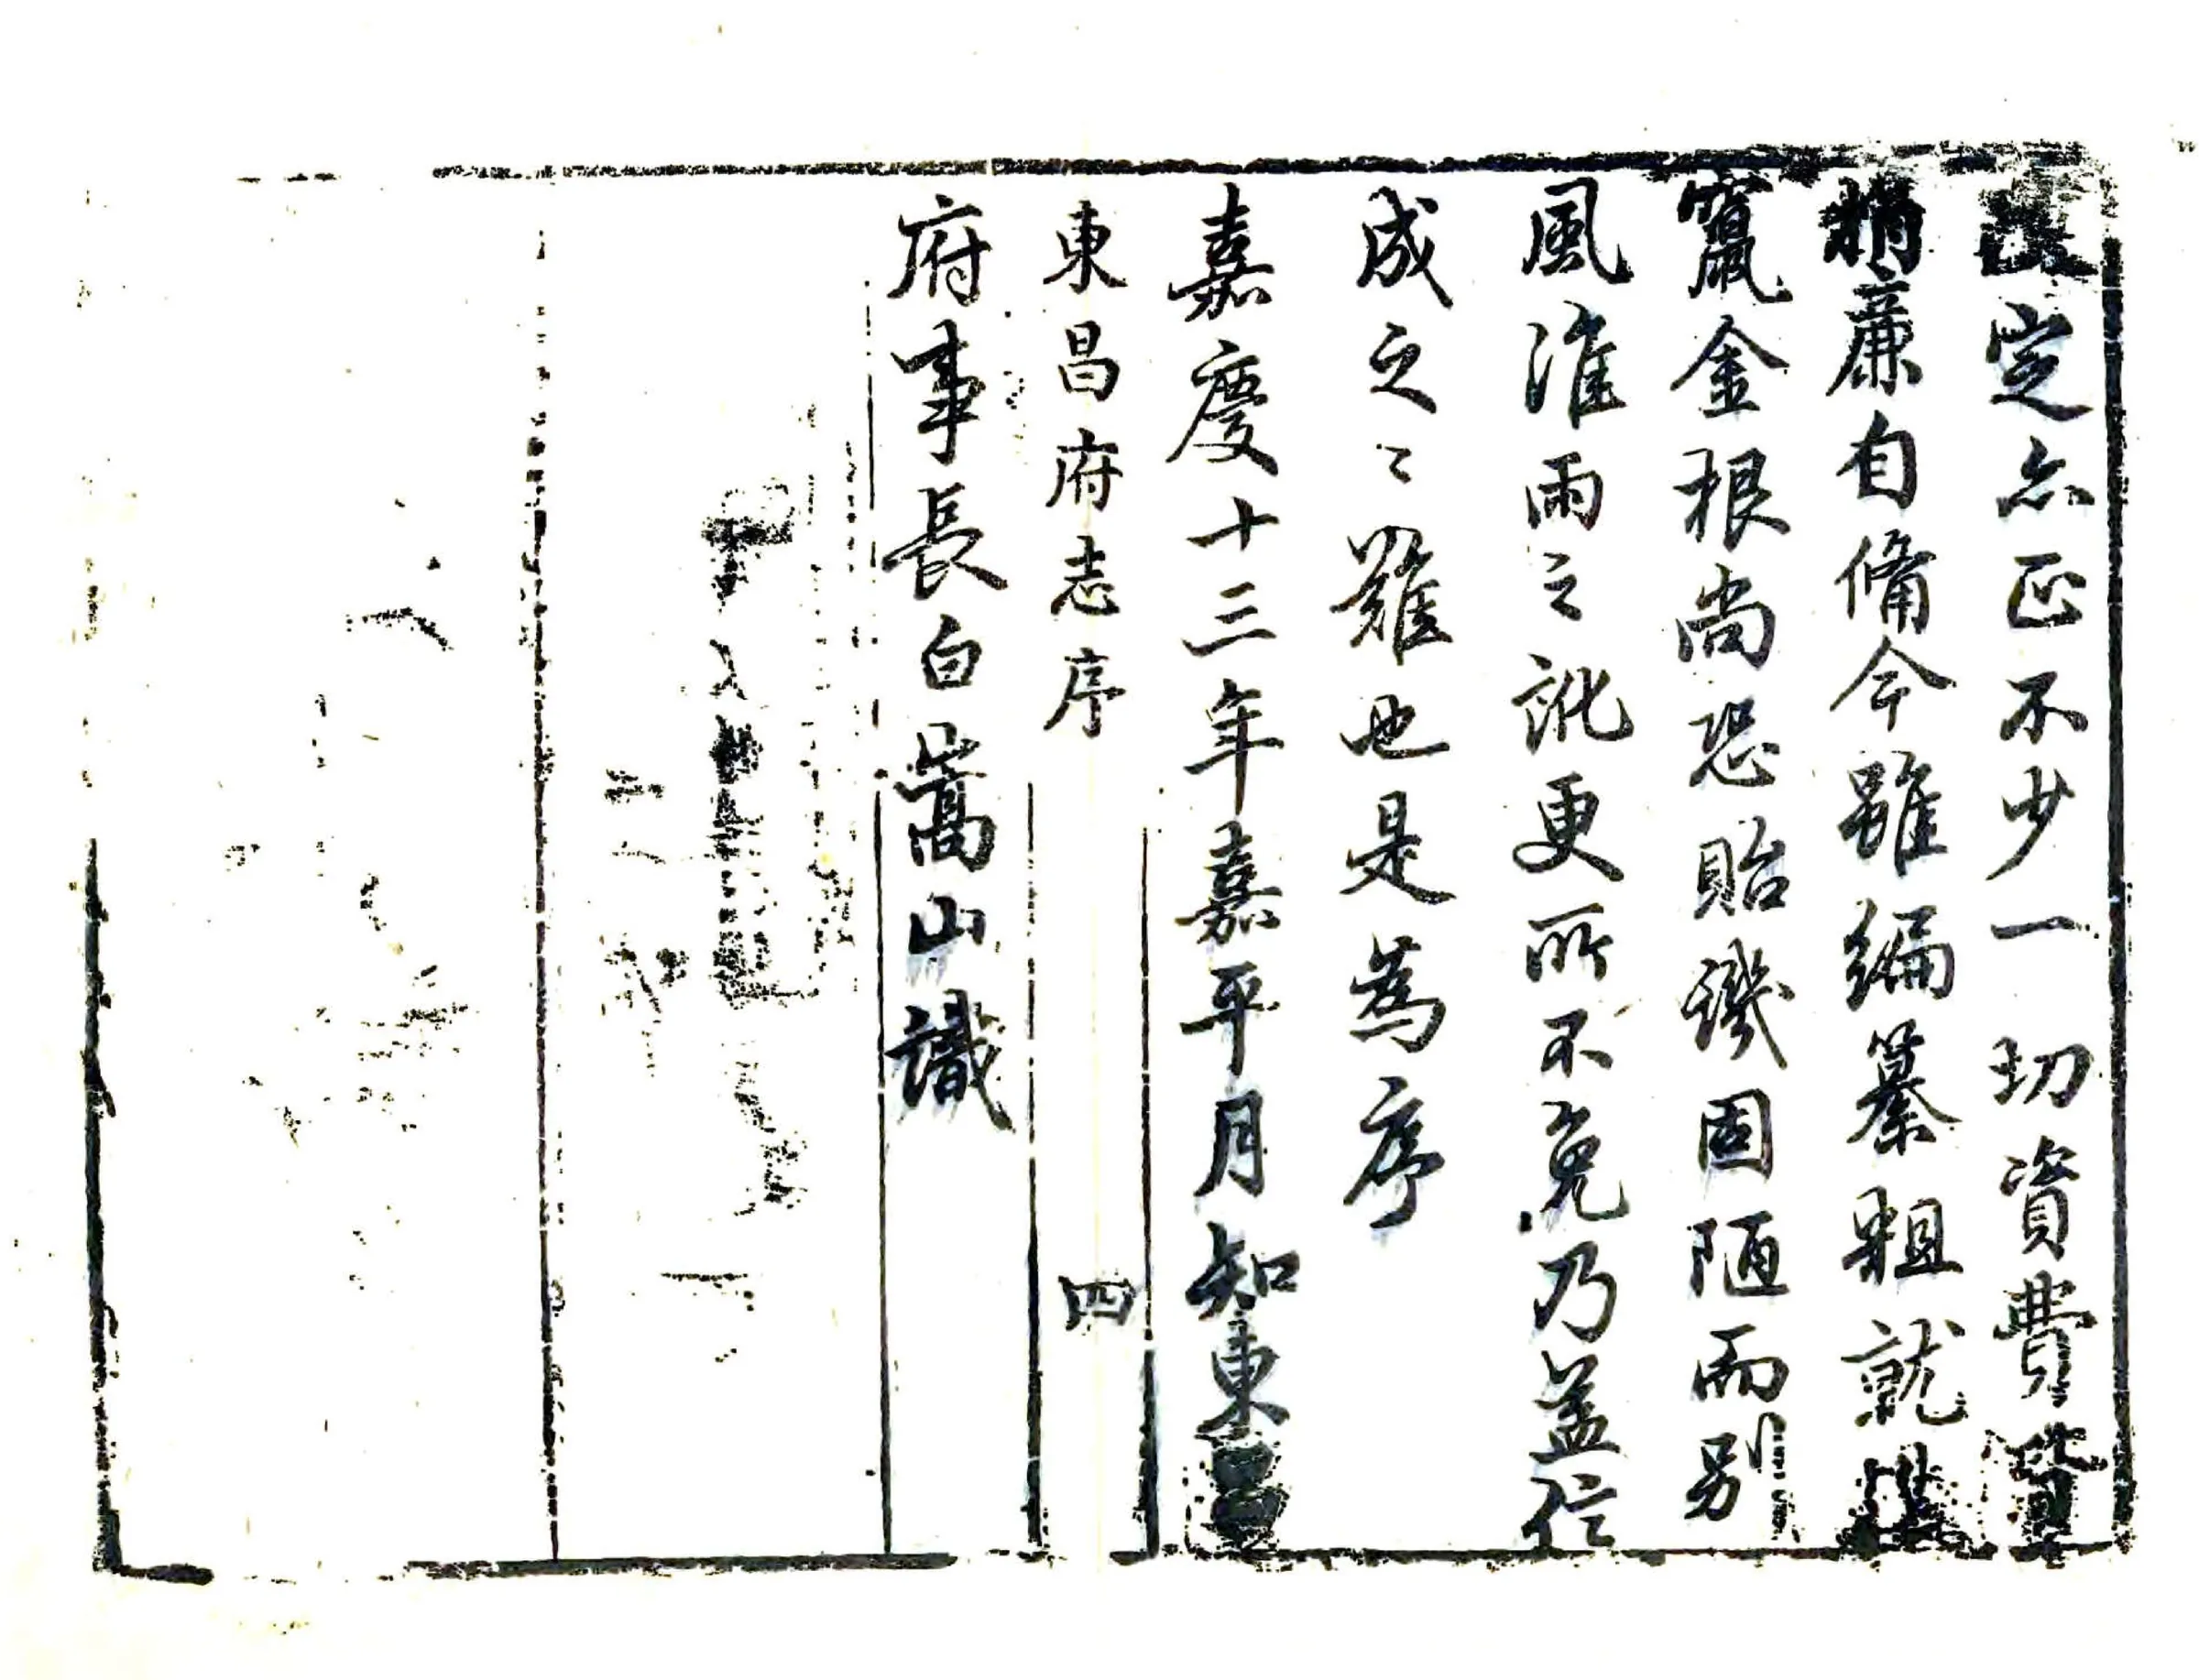 定亦正不少一切資費
捐廉自備今雖編纂粗就
竄金根尚恐貽譏固陋而别
風淮雨之訛更所不免乃益信
成之〻難也是為序
嘉慶十三年嘉平月知東昌
東昌府志序
四
府事長白嵩山識